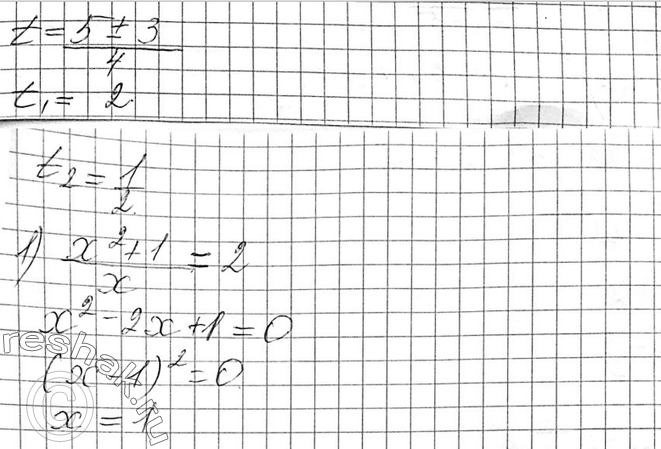 t = (5 ± 3)/4
t₁ = 2
t₂ = 1/2
1) (x² + 1)/x = 2
x² - 2x + 1 = 0
(x - 1)² = 0
x = 1
reshak.ru